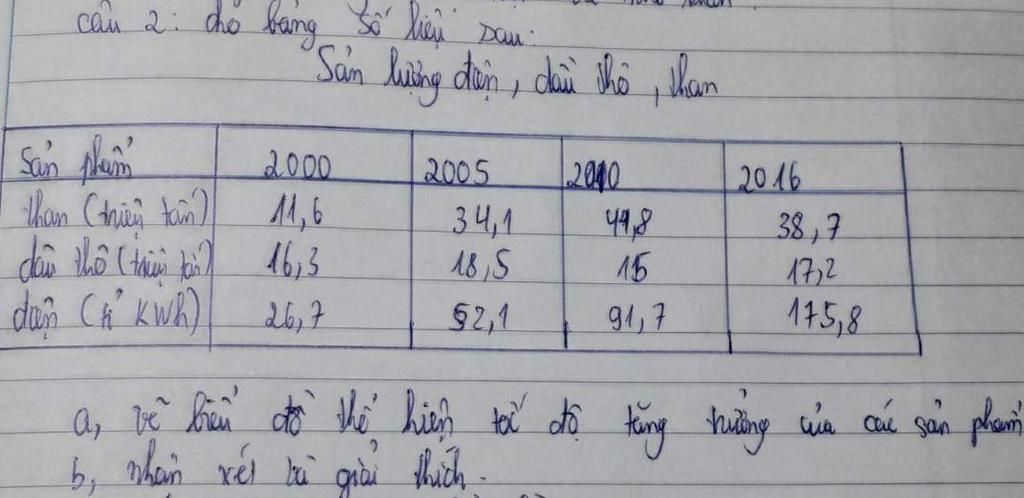 câu 2: cho bảng số liệu sau:
Sản lượng điện, dầu thô, than
Sản phẩm 2000 2005 2010 2016
than (triệu tấn) 11,6 34,1 44,8 38,7
dầu thô (triệu tấn) 16,3 18,5 15 17,2
điện (tỉ KWh) 26,7 52,1 91,7 175,8
a, vẽ biểu đồ thể hiện tốc độ tăng trưởng của các sản phẩm
b, nhận xét và giải thích.